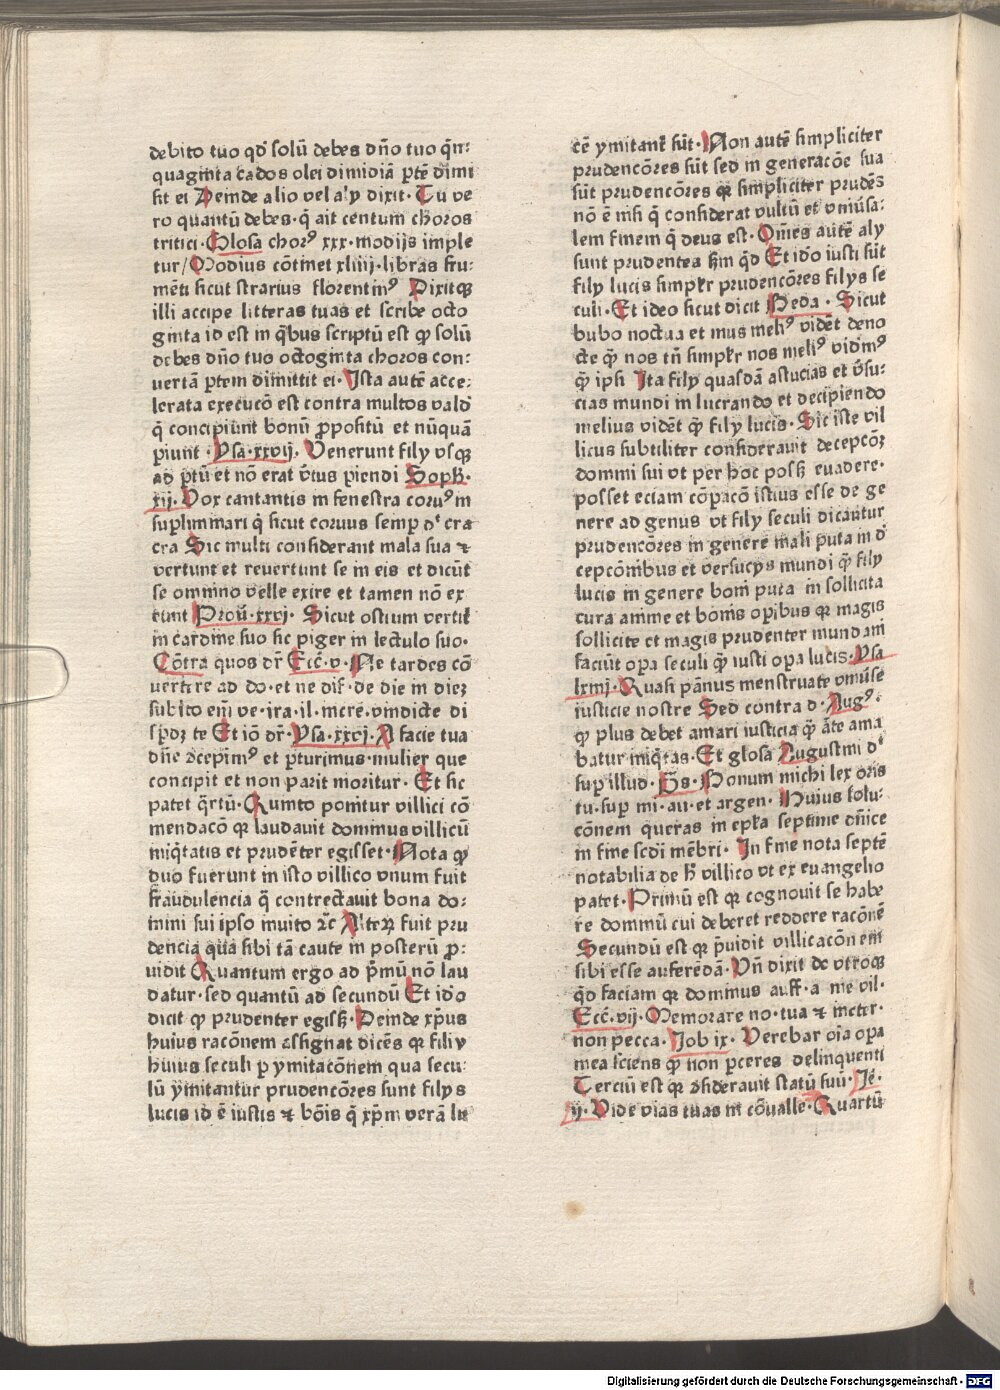 debito tuo qd̓ solū debes dn̄o tuo q̄n:
quaginta cados olei dimidiā ꝑtē dimi
sit ei Deinde alio vel aly dixit· Tu ve
ro quantū debes· q̄ ait centum choros
tritici· Glosa chorꝰ xxx·modijs imple
tur/ Modius cōtinet xliiij·libras fru:
mēti sicut strarius florentinꝰ Dixitqꝫ
illi accipe litteras tuas et scribe octo
ginta id est in q̄bus scriptū est ꝙ solū
debes dn̄o tuo octoginta choros con:
vertā ꝑtem dimittit ei· Ista autē acce:
lerata execucō est contra multos vald̓
q̄ concipiūnt bonū ꝓpositū et nūquā
ꝑiunt · Ysa·xxvij. Venerunt fily vsqꝫ
ad ꝑtū et nō erat v̓tus ꝑiendi Soph̓·
xij. Vox cantantis in fenestra coruꝰ in
supliminari q̄ sicut coruus semꝑ d̓t cra
cra Sic multi considerant mala sua ⁊
vertunt et revertunt se in eis et dicūt
se omnino velle exire et tamen nō ex
eunt Prou̓·xxvj· Sicut ostium vertit̓
in cardine suo sic piger in lectulo suo·
Cōtra quos dr̄ Ecc̄·v· Ne tardes cō
vertere ad do·et ne dif·de die in dieꝫ
subito eni̅ ve·ira·il·incre·vindicte di
sꝑdꝫ te Et iō dr̄·Ysa·xxvj· A facie tua
dn̄e ↄcepim̓ꝰ et ꝑturimus·mulier que
concipit et non parit moritur· Et sic
patet q̄rtū· Quinto ponitur villici cō
mendacō qꝛ laudavit dominus villicū
iniq̄tatis et prudēter egisset· Nota ꝙ
duo fuerunt in isto villico vnum fuit
fraudulencia q̄ contrectavit bona do:
mini sui ipso invito ⁊c̄ Alterꝫ fuit pru
dencia qua sibi tā caute in posterū ꝓ:
uidit Quantum ergo ad pm̄ū nō lau
datur·sed quantū ad secundū Et ido̓
dicit ꝙ prudenter egissꝫ· Deinde xp̄us
huius racōnem assignat dicēs qꝛ filiy
huius seculi ꝑ ymitacōnem qua secu:
lū ymitantur prudencōres sunt filys
lucis id ē iustis ⁊ bōis q̄ xp̄m verā lu
cē ymitant̓ sūt· Non autē simpliciter
prudencōres sūt sed in generacōe sua
sūt prudencōres qꝛ simpliciter prudēs
nō ē nisi q̄ considerat vultū et vniu̓sa·
lem finem q̄ deus est· Om̄es autē aly
sunt prudentes scd̄m qd̓ Et ido̓ iusti sūt
fily lucis simplr̓ prudencōres filys se
culi· Et ideo sicut dicit Beda· Sicut
bubo noctua et mus meliꝰ vidēt deno
cte ꝙ̄ nos tn̄ simplr̓ nos meliꝰ vidm̓ꝰ
ꝙ̄ ipsi Ita fily quasdā astucias et v̓su:
cias mundi in lucrando et decipiendo
melius vidēt ꝙ̄ fily lucis· Sic iste vil
licus subtiliter consideravit decepcōꝫ
domini sui vt per hoc possꝫ evadere·
posset eciam cōpacō istius esse de ge
nere ad genus vt fily seculi dicantur
prudencōres in genere mali puta in d̓
cepcōnibus et versucys mundi ꝙ̄ fily
lucis in genere boni puta in sollicita
cura anime et bonis oꝑibus qꝛ magis
sollicite et magis prudenter mundani
faciūt oꝑa seculi ꝙ̄ iusti oꝑa lucis· Ysa
lxiiij· Quasi pānus menstruate vniu̓se
iusticie nostre Sed contra d· Augꝰ·
ꝙ plus debet amari iusticia ꝙ̄ āte ama
batur iniq̄tas· Et glosa Augustini d̓t
suꝑ illud· Ps· Bonum michi lex oris
tu·suꝑ mi·au·et argen· Huius solu:
cōnem queras in epl̓a septime dn̄ice
in fine scd̓i mēbri· In fine nota septē
notabilia de h̓ villico vt ex evangelio
patet· Primū est qꝛ cognouit se habe
re dominū cui deberet reddere racōnē
Secundū est qꝛ pu̓idit villicacōnem
sibi esse auferēdā· Vn̄ dixit de vtroqꝫ
qd̓ faciam qꝛ dominus auff·a me vil·
Ecc̄·vij· Memorare no·tua ⁊ ineter·
non pecca· Job ix· Verebar oīa oꝑa
mea sciens ꝙ non ꝑceres delinquenti
Terciū est qꝛ ↄsideravit statū suū· Je·
ij· Vide vias tuas in cōualle· Quartū
Digitalisierung gefördert durch die Deutsche Forschungsgemeinschaft · DFG